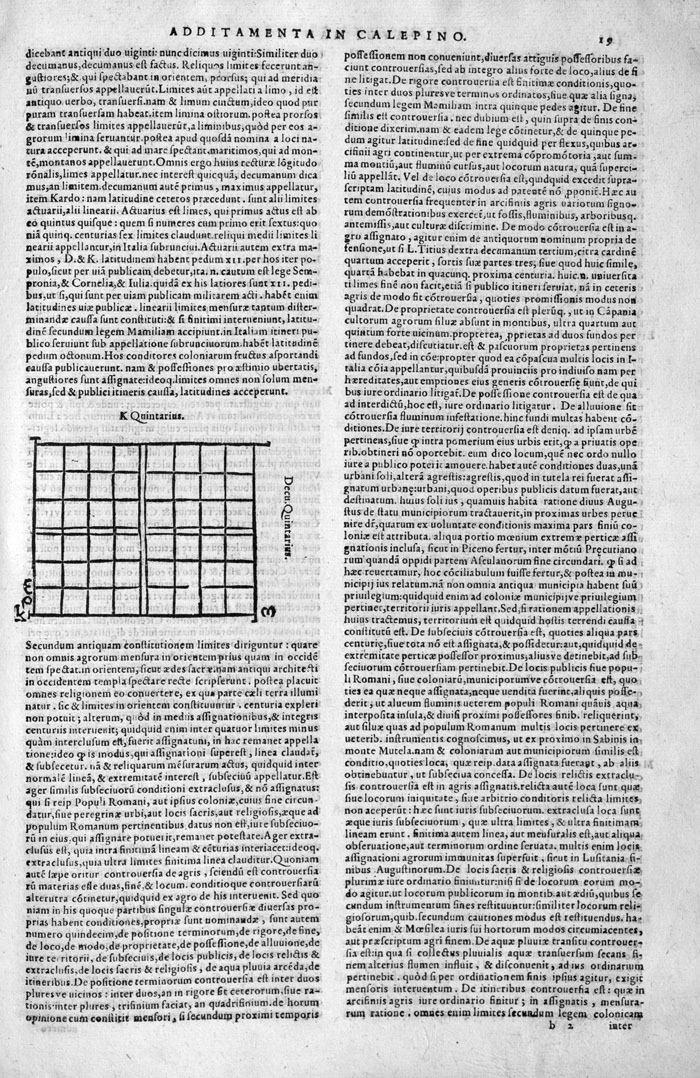 ADDITAMENTA IN CALEPINO.
19
dicebant antiqui duo uiginti: nunc dicimus uiginti: Similiter duo
decumanus, decumanus est factus. Reliquos limites fecerunt an-
gustiores; & qui spectabant in orientem, prorsus; qui ad meridia
nū transuersos appellauerūt. Limites aūt appellati a limo, id est
antiquo uerbo, transuersi. nam & limum cinctum, ideo quod pur
puram transuersam habeat. item limina ostiorum. postea prorsos
& transuersos limites appellauerūt, a liminibus, quòd per eos a-
grorum limina seruantur. postea apud quosdā nomina a loci na-
tura acceperunt. & qui ad mare spectant, maritimos, qui ad mon-
tē, montanos appellauerunt. Omnis ergo huius recturæ lōgitudo
rōnalis, limes appellatur. nec interest quicquā, decumanum dica
mus, an limitem. decumanum autē primus, maximus appellatur,
item. Kardo: nam latitudine ceteros præcedunt. sunt alii limites
actuarii, alii linearii. Actuarius est limes, qui primus actus est ab
eo quintus quisque: quem si numeres cum primo erit sextus: quo
niā quinq. centurias sex limites claudunt. reliqui medii limites li
nearii appellantur, in Italia subrunciui. Actuarii autem extra ma
ximos, D. & K. latitudinem habent pedum XII. per hos iter po-
pulo, sicut per uiā publicam debetur, ita. n. cautum est lege Sem-
pronia, & Cornelia, & Iulia. quidā ex his latiores sunt XII. pedi-
bus, ut si, qui sunt per uiam publicam militarem acti. habēt enim
latitudines uiæ publicæ. linearii limites mensuræ tantum dister-
minandæ caussa sunt constituti: & si finitimi interueniunt, latitu-
dinē secundum legem Mamiliam accipiunt. in Italiam itineri pu-
blico seruiunt sub appellatione subrunciuorum. habēt latitudinē
pedum octonum. Hos conditores coloniarum fructus asportandi
caussa publicauerunt. nam & possessiones pro æstimio ubertatis,
angustiores sunt assignatæ: ideoq. limites omnes non solum men-
suras, sed & publici itineris caussa, latitudines acceperunt.
K Quintarius.
Decu. Quintarius.
Secundum antiquam constitutionem limites diriguntur: quare
non omnis agrorum mensura in orientem prius quam in occidē
tem spectat. in orientem, sicut ædes sacræ. nam antiqui architecti
in occidentem templa spectare recte scripserunt. postea placuit
omnes religionem eo conuertere, ex qua parte cæli terra illumi
natur. sic & limites in orientem constituuntur. centuria expleri
non potuit; alterum, quòd in mediis assignationibus, & integris
centuriis interuenit; quidquid enim inter quatuor limites minus
quàm interclusum est, fuerit assignatum, in hac remanet appella
tione: ideo q̃ is modus, qui assignationi superest, linea claudat̃,
& subsecetur. nā & reliquarum mēsurarum actus, quidquid inter
normalē lineā, & extremitatē interest, subseciuū appellatur. Est
ager similis subseciuorū conditioni extraclusus, & nō assignatus:
qui si reip Populi Romani, aut ipsius coloniæ, cuius fine circun-
datur, siue peregrinæ urbi, aut locis sacris, aut religiosis, æque ad
populum Romanum pertinentibus datus non est, iure subseciuo-
rū in eius, qui assignare potuerit, remanet potestate. Ager extra-
clusus est, quia intra finitimā lineam & cēturias interiacet: ideoq.
extraclusus, quia ultra limites finitima linea clauditur. Quoniam
autē sæpe oritur controuersia de agris, sciendū est controuersia
rū materias esse duas, finē, & locum. conditioque controuersiarū
alterutra cōtinetur, quidquid ex agro de his interuenit. Sed quo
niam in his quoque partibus singulæ controuersiæ diuersas pro-
prias habent conditiones, propriæ sunt nominandæ, sunt autem
numero quindecim, de positione terminorum, de rigore, de fine,
de loco, de modo, de proprietate, de possessione, de alluuione, de
iure territorii, de subseciuis, de locis publicis, de locis relictis &
extraclusis, de locis sacris & religiosis, de aqua pluuia arcēda, de
itineribus. De positione terminorum controuersia est inter duos
pluresve uicinos: inter duos, an in rigore sit ceterorum. siue ra-
tionis inter plures, trifinium faciat, an quadrifinium. de horum
opinione cum constitit mensori, si secundum proximi temporis
possessionem non conueniunt, diuersas attiguis possessoribus fa-
ciunt controuersias, sed ab integro alius forte de loco, alius de fi
ne litigat. De rigore controuersia est finitimæ conditionis, quo-
ties inter duos pluresve terminos ordinatos, siue quæ alia signa,
secundum legem Mamiliam intra quinque pedes agitur. De fine
similis est controuersia. nec dubium est, quin supra de finis con-
ditione dixerim. nam & eadem lege cōtinetur, & de quinque pe-
dum agitur latitudine: sed de fine quidquid per flexus, quibus ar-
cifinii agri continentur, ut per extrema cōpromōtoria; aut sum-
ma montiū, aut fluminū cursus, aut locorum natura, quā superci-
liū appellāt. Vel de loco cōtrouersia est, quidquid excedit supra-
scriptam latitudinē, cuius modus ad patentē nō pponit. Hæc au
tem controuersia frequenter in arcifiniis agris uariorum signo-
rum demōstrationibus exercet, ut fossis, fluminibus, arboribusq.
antemissis, aut culturæ discrimine. De modo cōtrouersia est in a-
gro assignato, agitur enim de antiquorum nominum propria de
fensione, ut si L. Titius dextra decumanum tertium, citra cardinē
quartum acceperit, sortis suæ partes tres, siue quod huic simile,
quartā habebat in quacunq. proxima centuria. huic. n. uniuersita
ti limes finē non facit, etiā si publico itineri seruiat. nā in ceteris
agris de modo fit cōtrouersia, quoties promissionis modus non
quadrat. De proprietate controuersia est plerūq., ut in Cāpania
cultorum agrorum siluæ absunt in montibus, ultra quartum aut
quintum forte uicinum. propterea, pprietas ad duos fundos per
tinere debeat, disceptatur. est & pascuorum proprietas pertinens
ad fundos, sed in cōe: propter quod ea cōpascua multis locis in I-
talia cōia appellantur, quibusdā prouinciis pro indiuiso nam per
hæreditates, aut emptiones eius generis cōtrouersię fiunt, de qui
bus iure ordinario litigat̃. De possessione controuersia est de qua
ad interdictū, hoc est, iure ordinario litigatur. De alluuione fit
cōtrouersia fluminum infestatione. hinc fundi multas habent cō-
ditiones. De iure territorij controuersia est deniq. ad ipsam urbē
pertinens, siue q̃ intra pomerium eius urbis erit, q̃ a priuatis ope
rib. obtineri nō oportebit. eum dico locum, quē nec ordo nullo
iure a publico poterit amouere. habet autē conditiones duas, unā
urbani soli, alterā agrestis: agrestis, quod in tutela rei fuerat assi-
gnatum urbanę: urbani, quod operibus publicis datum fuerat, aut
destinatum. huius soli ius, quamuis habita ratione diuus Augu-
stus de statu municipiorum tractauerit, in proximas urbes perue
nire dr, quarum ex uoluntate conditionis maxima pars finiū co-
loniæ est attributa. aliqua portio mœnium extremæ perticæ assi
gnationis inclusa, sicut in Piceno fertur, inter mōtiū Pręcutiano
rum quandā oppidi partem Asculanorum fine circundari. q̃ si ad
hæc reuertamur, hoc cōciliabulum fuisse fertur, & postea in mu-
nicipij ius relatum. nā non omnia antiqua municipia habent suū
priuilegium: quidquid enim ad coloniæ municipijve priuilegium
pertinet, territorii iuris appellant. Sed, si rationem appellationis
huius tractemus, territorium est quidquid hostis terrendi caussa
constitutū est. De subseciuis cōtrouersia est, quoties aliqua pars
centurię, siue tota nō est assignata, & possidetur: aut, quidquid de
extremitate perticæ possessor proximus, aliusve detinebit, ad sub-
seciuorum cōtrouersiam pertinebit. De locis publicis siue popu-
li Romani, siue coloniarū, municiporumve cōtrouersia est, quo-
ties ea quæ neque assignata, neque uendita fuerint, aliquis posse-
derit, ut alueum fluminis ueterem populi Romani quāuis, aqua
interposita insula, & diuisi proximi possessores finib. reliquerint,
aut siluæ quas ad populum Romanum multis locis pertinere ex
ueterib. instrumentis cognoscimus, ut ex proximo in Sabinis in
monte Mutela. nam & coloniarum aut municipiorum similis est
conditio, quoties loca, quæ reip. data assignata fuerant, ab aliis
obtinebuntur, ut subseciua concessa. De locis relictis extraclu-
sis controuersia est in agris assignatis. relicta autē loca sunt quæ
siue locorum iniquitate, siue arbitrio conditoris relicta limites
non aceperūt: hæc sunt iuris subseciuorum. extraclusa loca sunt
æque iuris subseciuorum, quæ ultra limites, & ultra finitimam
lineam erunt. finitima autem linea, aut mensuralis est, aut aliqua
obseruatione, aut terminorum ordine seruata. multis enim locis
assignationi agrorum immunitas superfuit, sicut in Lusitania fi-
nibus Augustinorum. De locis sacris & religiosis controuersiæ
plurimæ iure ordinario finiuntur: nisi si de locorum eorum mo-
do agitur. ut locorum publicorum in mōtib. aut ædiū, quibus se
cundum instrumentum fines restituuntur: similiter locorum reli-
giosorum, quib. secundum cautiones modus est restituendus. ha-
beāt enim & Mœsilea iuris sui hortorum modos circumiacentes,
aut præscriptum agri finem. De aquæ pluuiæ transitu controuer-
sia est: in qua si collectus pluuialis aquæ transuersum secans fi-
nem alterius flumen influit, & disconuenit, ad ius ordinarium
pertinebit. quòd si per ordinationem finis ipsius agitur, exigit
mensoris interuentum. De itineribus controuersia est: quæ in
arcifiniis agris iure ordinario finitur; in assignatis, mensura-
rum ratione. omnes enim limites secundum legem colonicam
b 2 inter